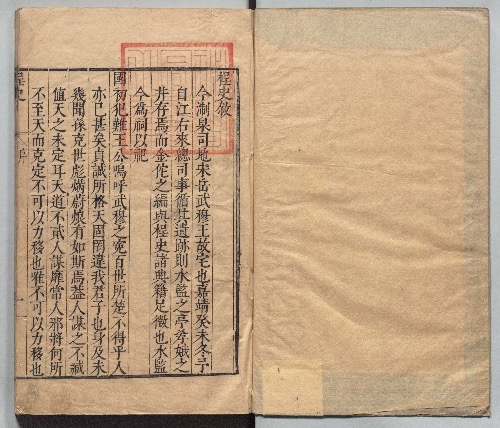 桯史敘
今淛臬司地宋岳武穆王故宅也嘉靖癸未冬予
自江右來總司事循其遺跡則水監之亭孝娥之
井存焉而金佗之編與桯史諸典籍足徵也水監
今爲祠以祀
國初犯難王公嗚呼武穆之寃百世所楚不得乎人
亦已甚矣貞誠所格天固罔違我君子也身及未
幾聞孫克世彪炳蔚㒕有如斯焉蓋人謀之不臧
值天之未定耳天道不貳人謀靡常人邪將何所
不至天而克定不可以力移也雖不可以力移也
桯史
序